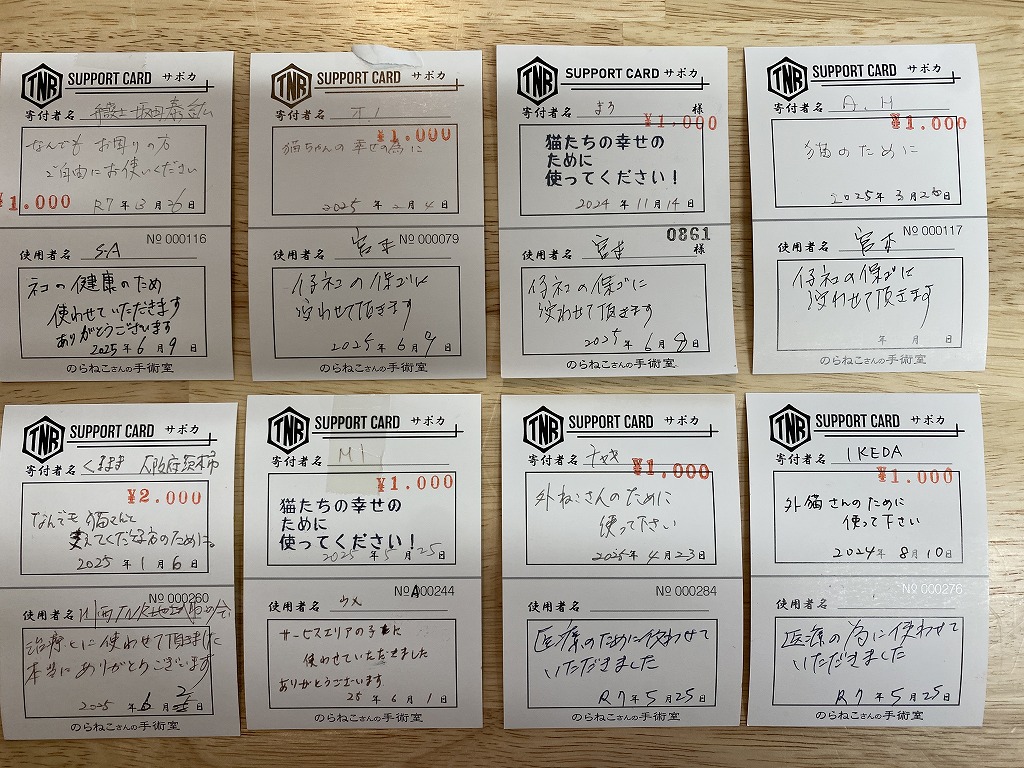 TNR SUPPORT CARD サポカ
寄付者名
なんでも お困りの方
ご自由にお使いください
¥1.000
R7年3月26日
№000116
使用者名 S.A
ネコの健康のため
使わせていただきます
ありがとうございます
2025年6月9日
のらねこさんの手術室
TNR SUPPORT CARD サポカ
寄付者名
¥1.000
猫ちゃんの幸せの為に
2025年2月4日
№000079
使用者名 宮本
仔ネコの保ゴに
使わせて頂きます
2025年6月9日
のらねこさんの手術室
TNR SUPPORT CARD サポカ
寄付者名 まろ 様
¥1,000
猫たちの幸せの
ために
使ってください！
2024年11月14日
0861
使用者名 宮本 様
仔ネコの保ゴに
使わせて頂きます
2025年6月9日
のらねこさんの手術室
TNR SUPPORT CARD サポカ
寄付者名 A.H
¥1.000
猫のために
2025年3月26日
№000117
使用者名 宮本
仔ネコの保ゴに
使わせて頂きます
年 月 日
のらねこさんの手術室
TNR SUPPORT CARD サポカ
寄付者名 くるまま 大阪府茨木市
¥2.000
なんでも猫さんを
支えてくださる方のために。
2025年1月6日
№000260
使用者名
治療ヒに使わせて頂きました
本当にありがとうございます
2025年6月2日
のらねこさんの手術室
TNR SUPPORT CARD サポカ
寄付者名 M.h
¥1.000
猫たちの幸せの
ために
使ってください！
2025年5月25日
№A000244
使用者名 ウメ
サービスエリアの子に
使わせていただきました
ありがとうございます
25年6月1日
のらねこさんの手術室
TNR SUPPORT CARD サポカ
寄付者名 チャキ
¥1,000
外ねこさんのために
使って下さい
2025年4月23日
№000284
使用者名
医療のために使わせて
いただきました
R7年5月25日
のらねこさんの手術室
TNR SUPPORT CARD サポカ
寄付者名 IKEDA
¥1.000
外猫さんのために
使って下さい
2024年8月10日
№000276
使用者名
医療の為に使わせて
いただきました
R7年5月25日
のらねこさんの手術室